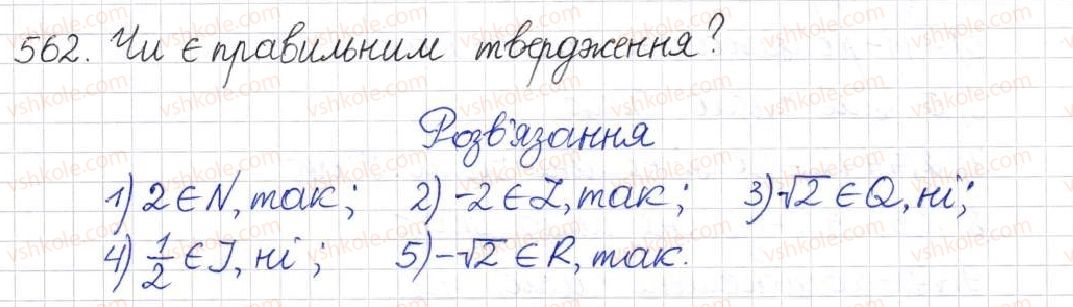 562. Чи є правильним твердження?
Розв'язання
1) 2 ∈ N, так; 2) -2 ∈ Z, так; 3) √2 ∈ Q, ні;
4) 1/2 ∈ I, ні; 5) -√2 ∈ R, так.
vshkole.com